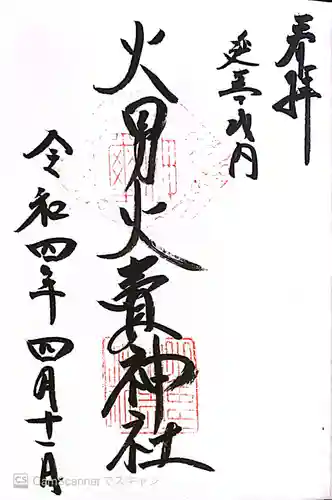 奉拝
延喜式内
火男火賣神社
令和四年 四月十一日
CS CamScannerでスキャン